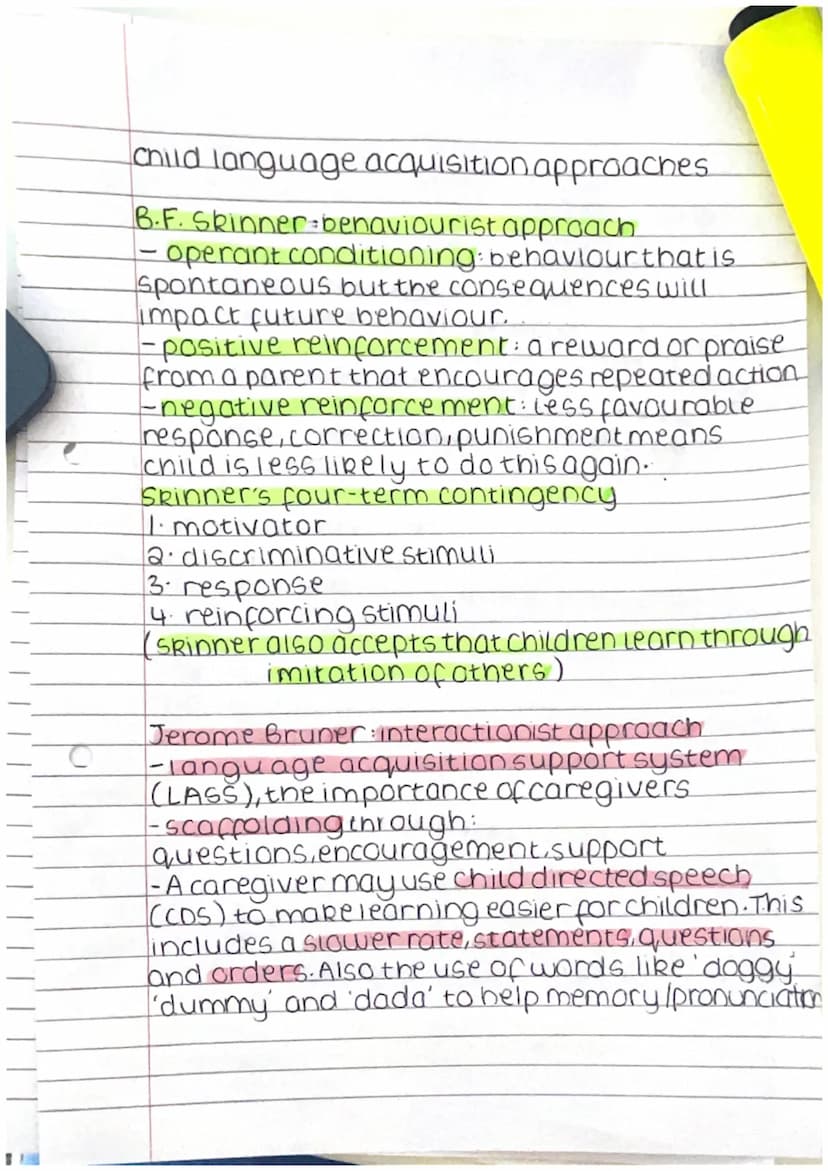 child language acquisition approaches
B.F. Skinner: behaviourist approach
- operant conditioning: behaviour that is
spontaneous but the consequences will
impact future behaviour.
- positive reinforcement: a reward or praise
from a parent that encourages repeated action
- negative reinforcement: less favourable
response, correction, punishment means
child is less likely to do this again.
Skinner's four-term contingency
1. motivator
2. discriminative stimuli
3. response
4. reinforcing stimuli
(Skinner also accepts that children learn through
imitation of others)
Jerome Bruner: interactionist approach
- language acquisition support system
(LASS), the importance of caregivers
- scaffolding through:
questions, encouragement, support
- A caregiver may use child directed speech
(CDS) to make learning easier for children. This
includes a slower rate, statements, questions
and orders. Also the use of words like 'doggy'
'dummy' and 'dada' to help memory/pronunciation